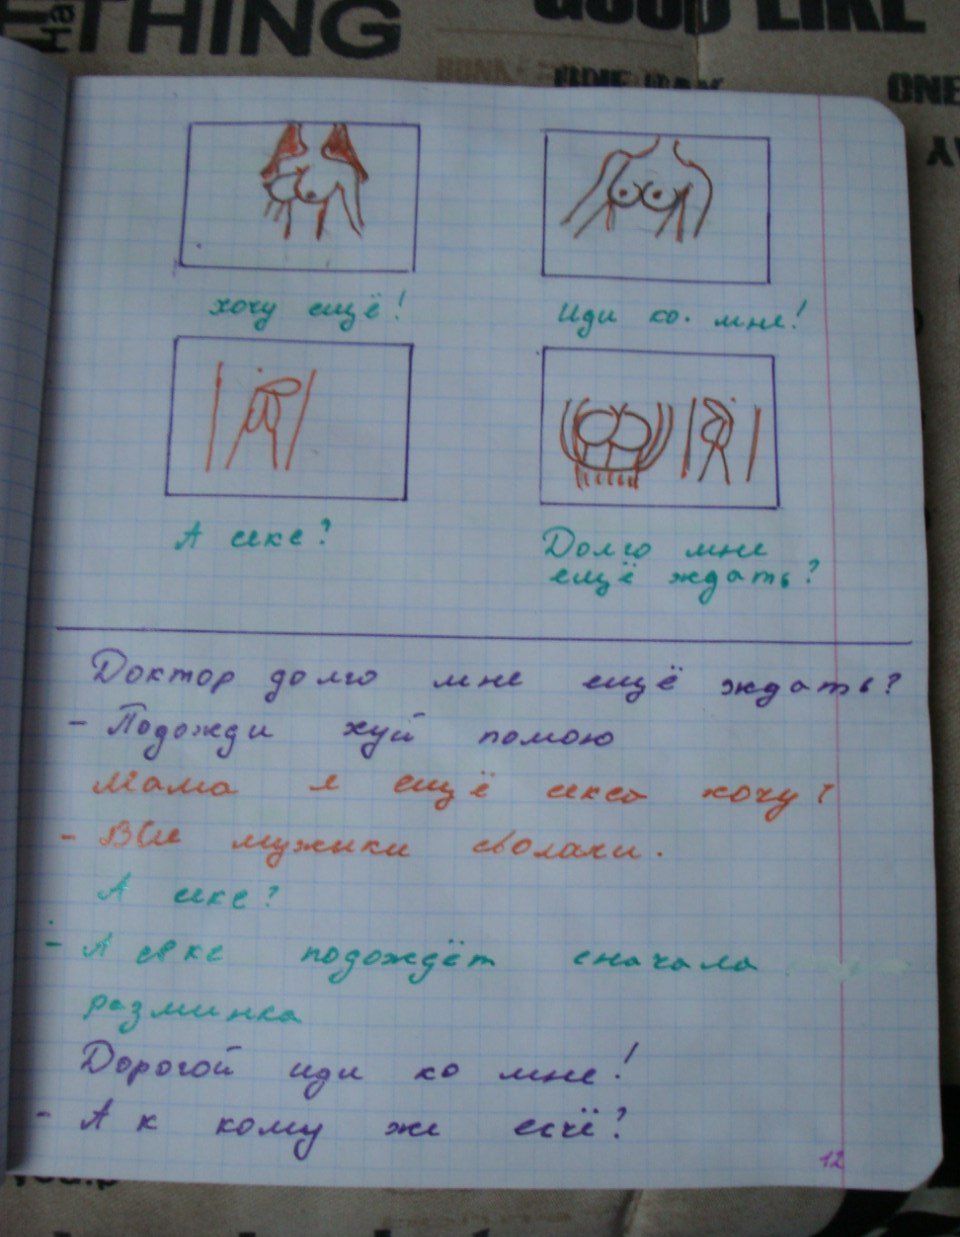 ETHING
GOOD LIKE
ONE DAY
ONE
хочу ещё!
Иди ко. мне!
А секс?
Долго мне
ещё ждать?
Доктор долго мне ещё ждать?
- Подожди хуй помою
Мама я ещё секса хочу!
- Вы мужики сволачи.
А секс?
- А секс подождёт сначала
разминка
Дорогой иди ко мне!
- А к кому же есчё?
12